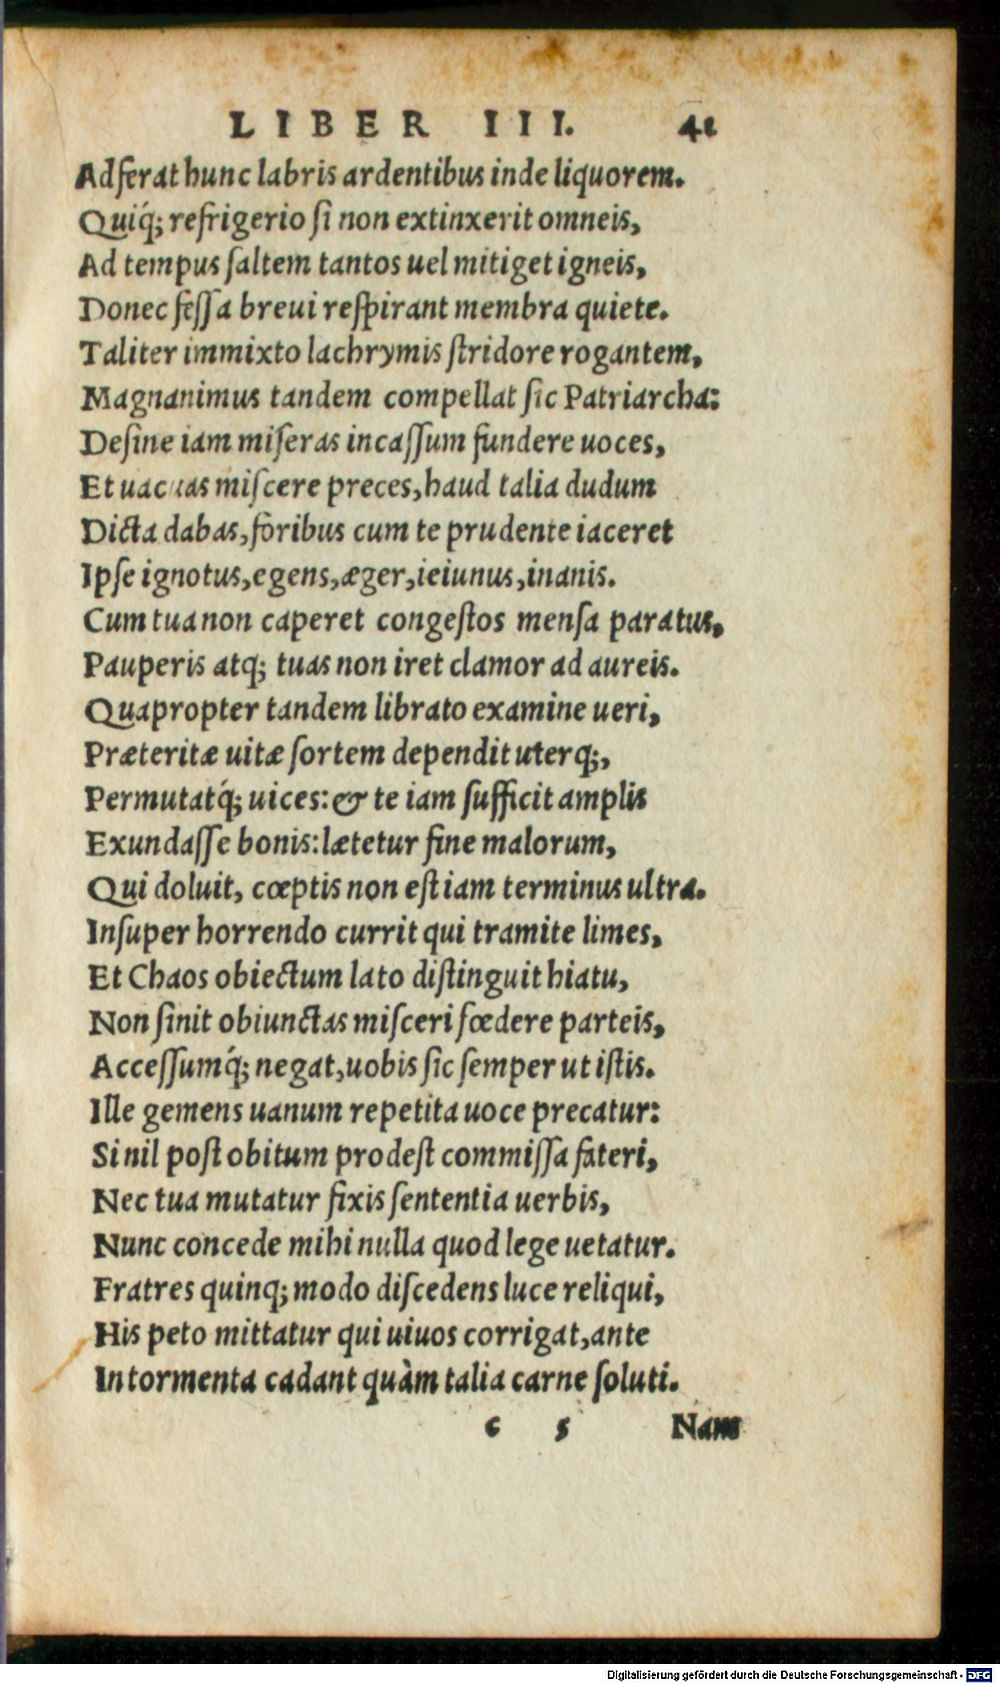 LIBER III. 41
Adferat hunc labris ardentibus inde liquorem.
Quiq́; refrigerio ſi non extinxerit omneis,
Ad tempus ſaltem tantos uel mitiget igneis,
Donec feſſa breui reſpirant membra quiete.
Taliter immixto lachrymis ſtridore rogantem,
Magnanimus tandem compellat ſic Patriarcha:
Deſine iam miſeras incaſſum fundere uoces,
Et uacuas miſcere preces, haud talia dudum
Dicta dabas, foribus cum te prudente iaceret
Ipſe ignotus, egens, æger, ieiunus, inanis.
Cum tua non caperet congeſtos menſa paratus,
Pauperis atq; tuas non iret clamor ad aureis.
Quapropter tandem librato examine ueri,
Præteritæ uitæ ſortem dependit uterq;,
Permutatq́; uices: & te iam ſufficit amplis
Exundaſſe bonis: lætetur fine malorum,
Qui doluit, cœptis non eſt iam terminus ultra.
Inſuper horrendo currit qui tramite limes,
Et Chaos obiectum lato diſtinguit hiatu,
Non ſinit obiunctas miſceri fœdere parteis,
Acceſſumq́; negat, uobis ſic ſemper ut iſtis.
Ille gemens uanum repetita uoce precatur:
Si nil poſt obitum prodeſt commiſſa fateri,
Nec tua mutatur fixis ſententia uerbis,
Nunc concede mihi nulla quod lege uetatur.
Fratres quinq; modo diſcedens luce reliqui,
His peto mittatur qui uiuos corrigat, ante
In tormenta cadant quàm talia carne ſoluti.
c 5 Nam
Digitalisierung gefördert durch die Deutsche Forschungsgemeinschaft - DFG